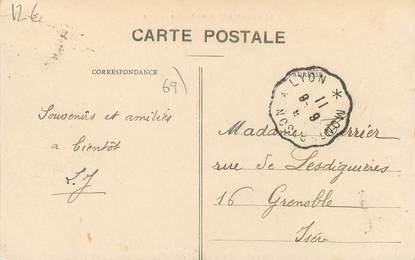 12 €
CARTE POSTALE
CORRESPONDANCE
ADRESSE
69)
A LYON
11
9 - 9
Souvenirs et amitiés
à bientôt
L. J
Madame
rue de Lesdiguières
16 Grenoble
Isère